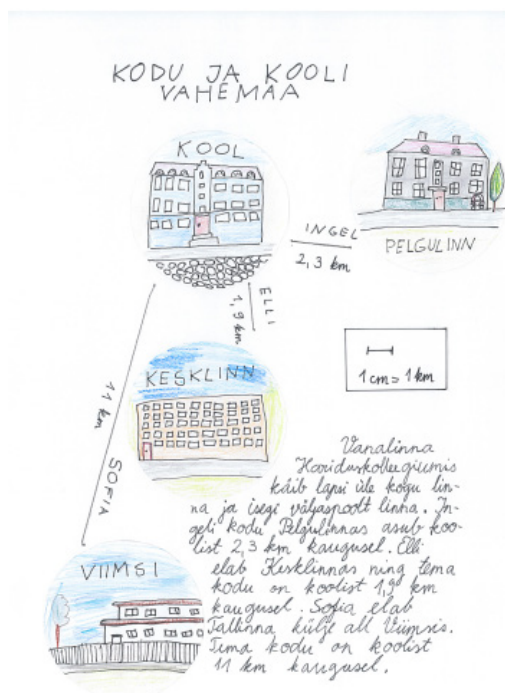 KODU JA KOOLI
VAHEMAA
KOOL
INGEL
2,3 km
PELGULINN
ELLI
1,9 km
KESKLINN
1 cm = 1 km
11 km
SOFIA
VIIMSI
Vanalinna
Hariduskolleegiumis
käib lapsi üle kogu lin-
na ja isegi väljaspoolt linna. In-
geli kodu Pelgulinnas asub koo-
list 2,3 km kaugusel. Elli
elab Kesklinnas ning tema
kodu on koolist 1,9 km
kaugusel. Sofia elab
Tallinna külje all Viimsis.
Tema kodu on koolist
11 km kaugusel.